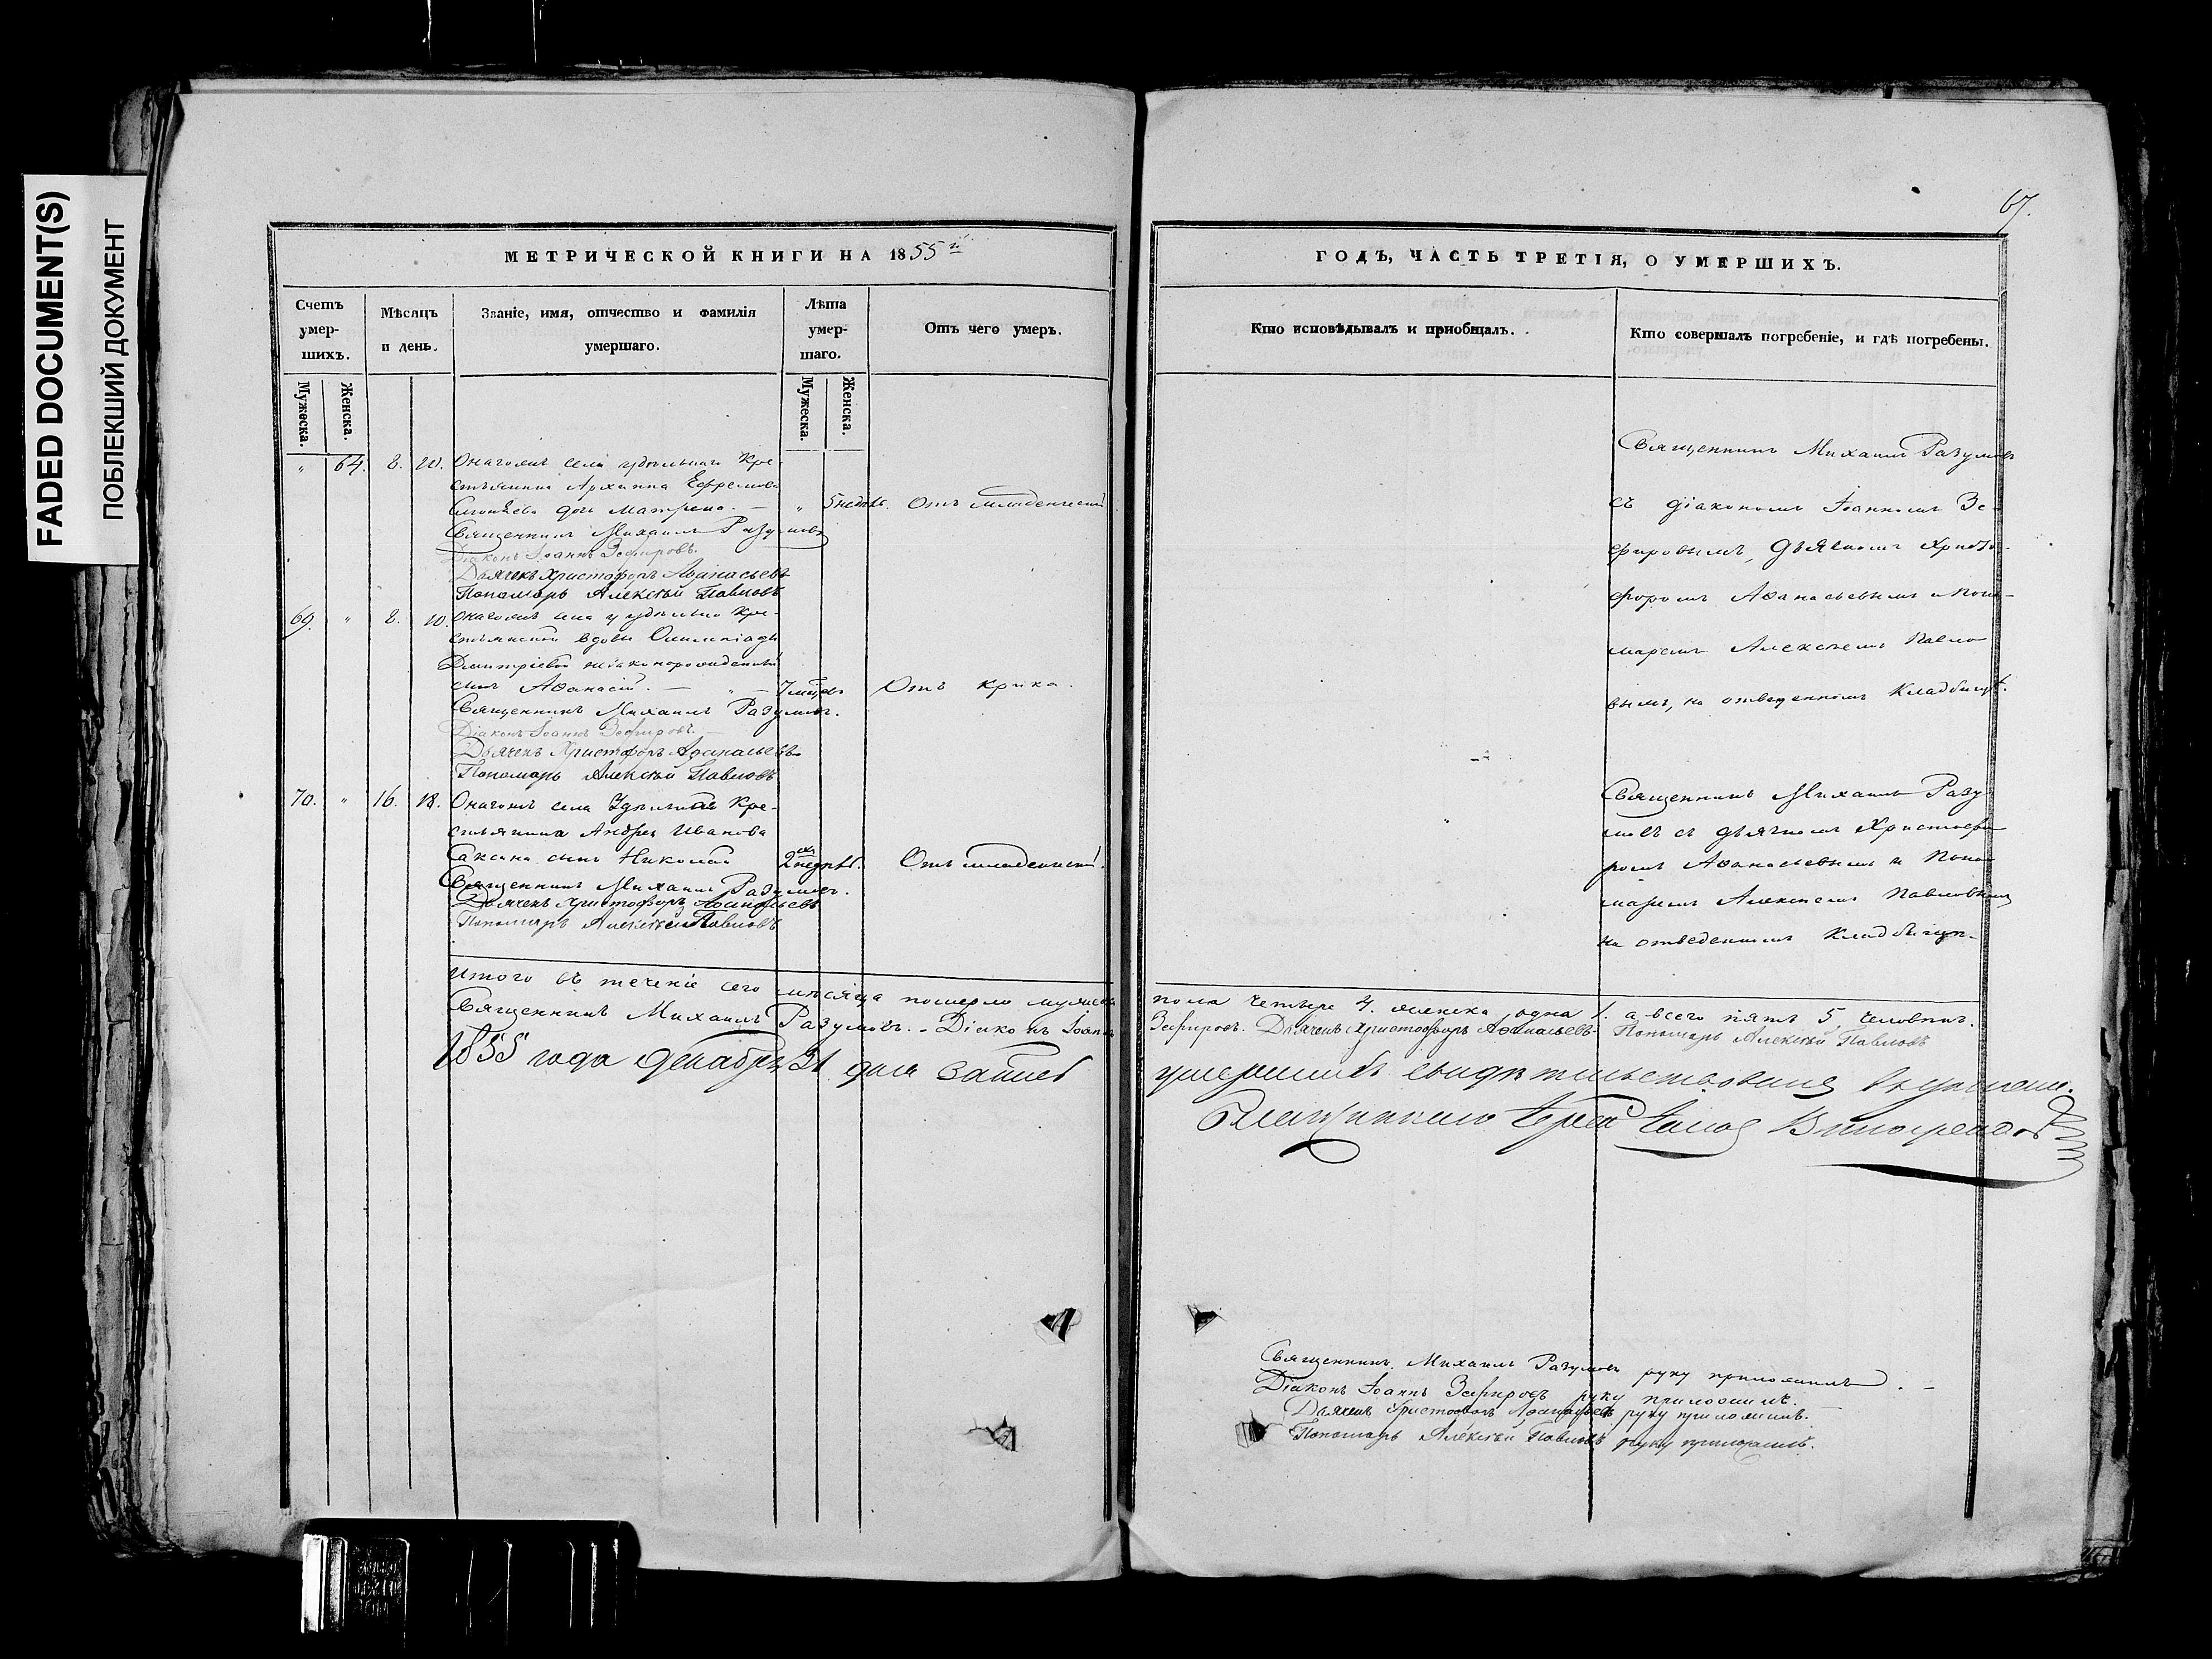 FADED DOCUMENT(S)
ПОБЛЕКШИЙ ДОКУМЕНТ
67.
МЕТРИЧЕСКОЙ КНИГИ НА 1855й
ГОДЪ, ЧАСТЬ ТРЕТІЯ, О УМЕРШИХЪ.
Счетъ умер-шихъ.
Мѣсяцъ и день.
Званіе, имя, отчество и фамилія умершаго.
Лѣта умер-шаго.
Отъ чего умеръ.
Кто исповѣдывалъ и приобщалъ.
Кто совершалъ погребеніе, и гдѣ погребены.
Мужеска.
Женска.
Мужеска.
Женска.
" 64. 8. 10. Онагожъ села удѣльнаго Кре-
стьянина Архипа Ефремова
дочь Матрена. — " 5 недѣль. Отъ младенческой
Священникъ Михаилъ Разумовъ
Діаконъ Іоаннъ Зефировъ.
Дьячекъ Христофоръ Аѳанасьевъ
Пономарь Алексѣй Павловъ
Священникъ Михаилъ Разумовъ
съ діакономъ Іоанномъ Зе-
фировымъ, дьячкомъ Христо-
форомъ Аѳанасьевымъ и поно-
маремъ Алексѣемъ Павло-
вымъ, на отведенномъ Кладбищѣ.
69. " 8. 10. Онагожъ села у удѣльной кре-
стьянской вдовы Олимпіады
Дмитріевой незаконорожденный
сынъ Аѳанасій. — " — 7 мѣсяц. Отъ крика.
Священникъ Михаилъ Разумовъ.
Діаконъ Іоаннъ Зефировъ.
Дьячекъ Христофоръ Аѳанасьевъ
Пономарь Алексѣй Павловъ
70. " 16. 18. Онагожъ села Удѣльнаго Кре-
стьянина Андрея Иванова
сынъ Николай 2 недѣль. Отъ младенческой.
Священникъ Михаилъ Разумовъ.
Дьячекъ Христофоръ Аѳанасьевъ
Пономарь Алексѣй Павловъ
Священникъ Михаилъ Разу-
мовъ съ дьячкомъ Христофо-
ромъ Аѳанасьевымъ и Поно-
маремъ Алексѣемъ Павловымъ
на отведенномъ Кладбищѣ.
Итого въ теченіе сего мѣсяца померло мужеска пола четыре 4. женска одна 1. а всего пять 5. человѣкъ.
Священникъ Михаилъ Разумовъ. - Діаконъ Іоаннъ Зефировъ. Дьячекъ Христофоръ Аѳанасьевъ. Пономарь Алексѣй Павловъ
1855 года Декабря 31 дня
умершихъ свидѣтельствовалъ
Священникъ Михаилъ Разумовъ руку приложилъ. —
Діаконъ Іоаннъ Зефировъ руку приложилъ.
Дьячекъ Христофоръ Аѳанасьевъ руку приложилъ.
Пономарь Алексѣй Павловъ руку приложилъ.